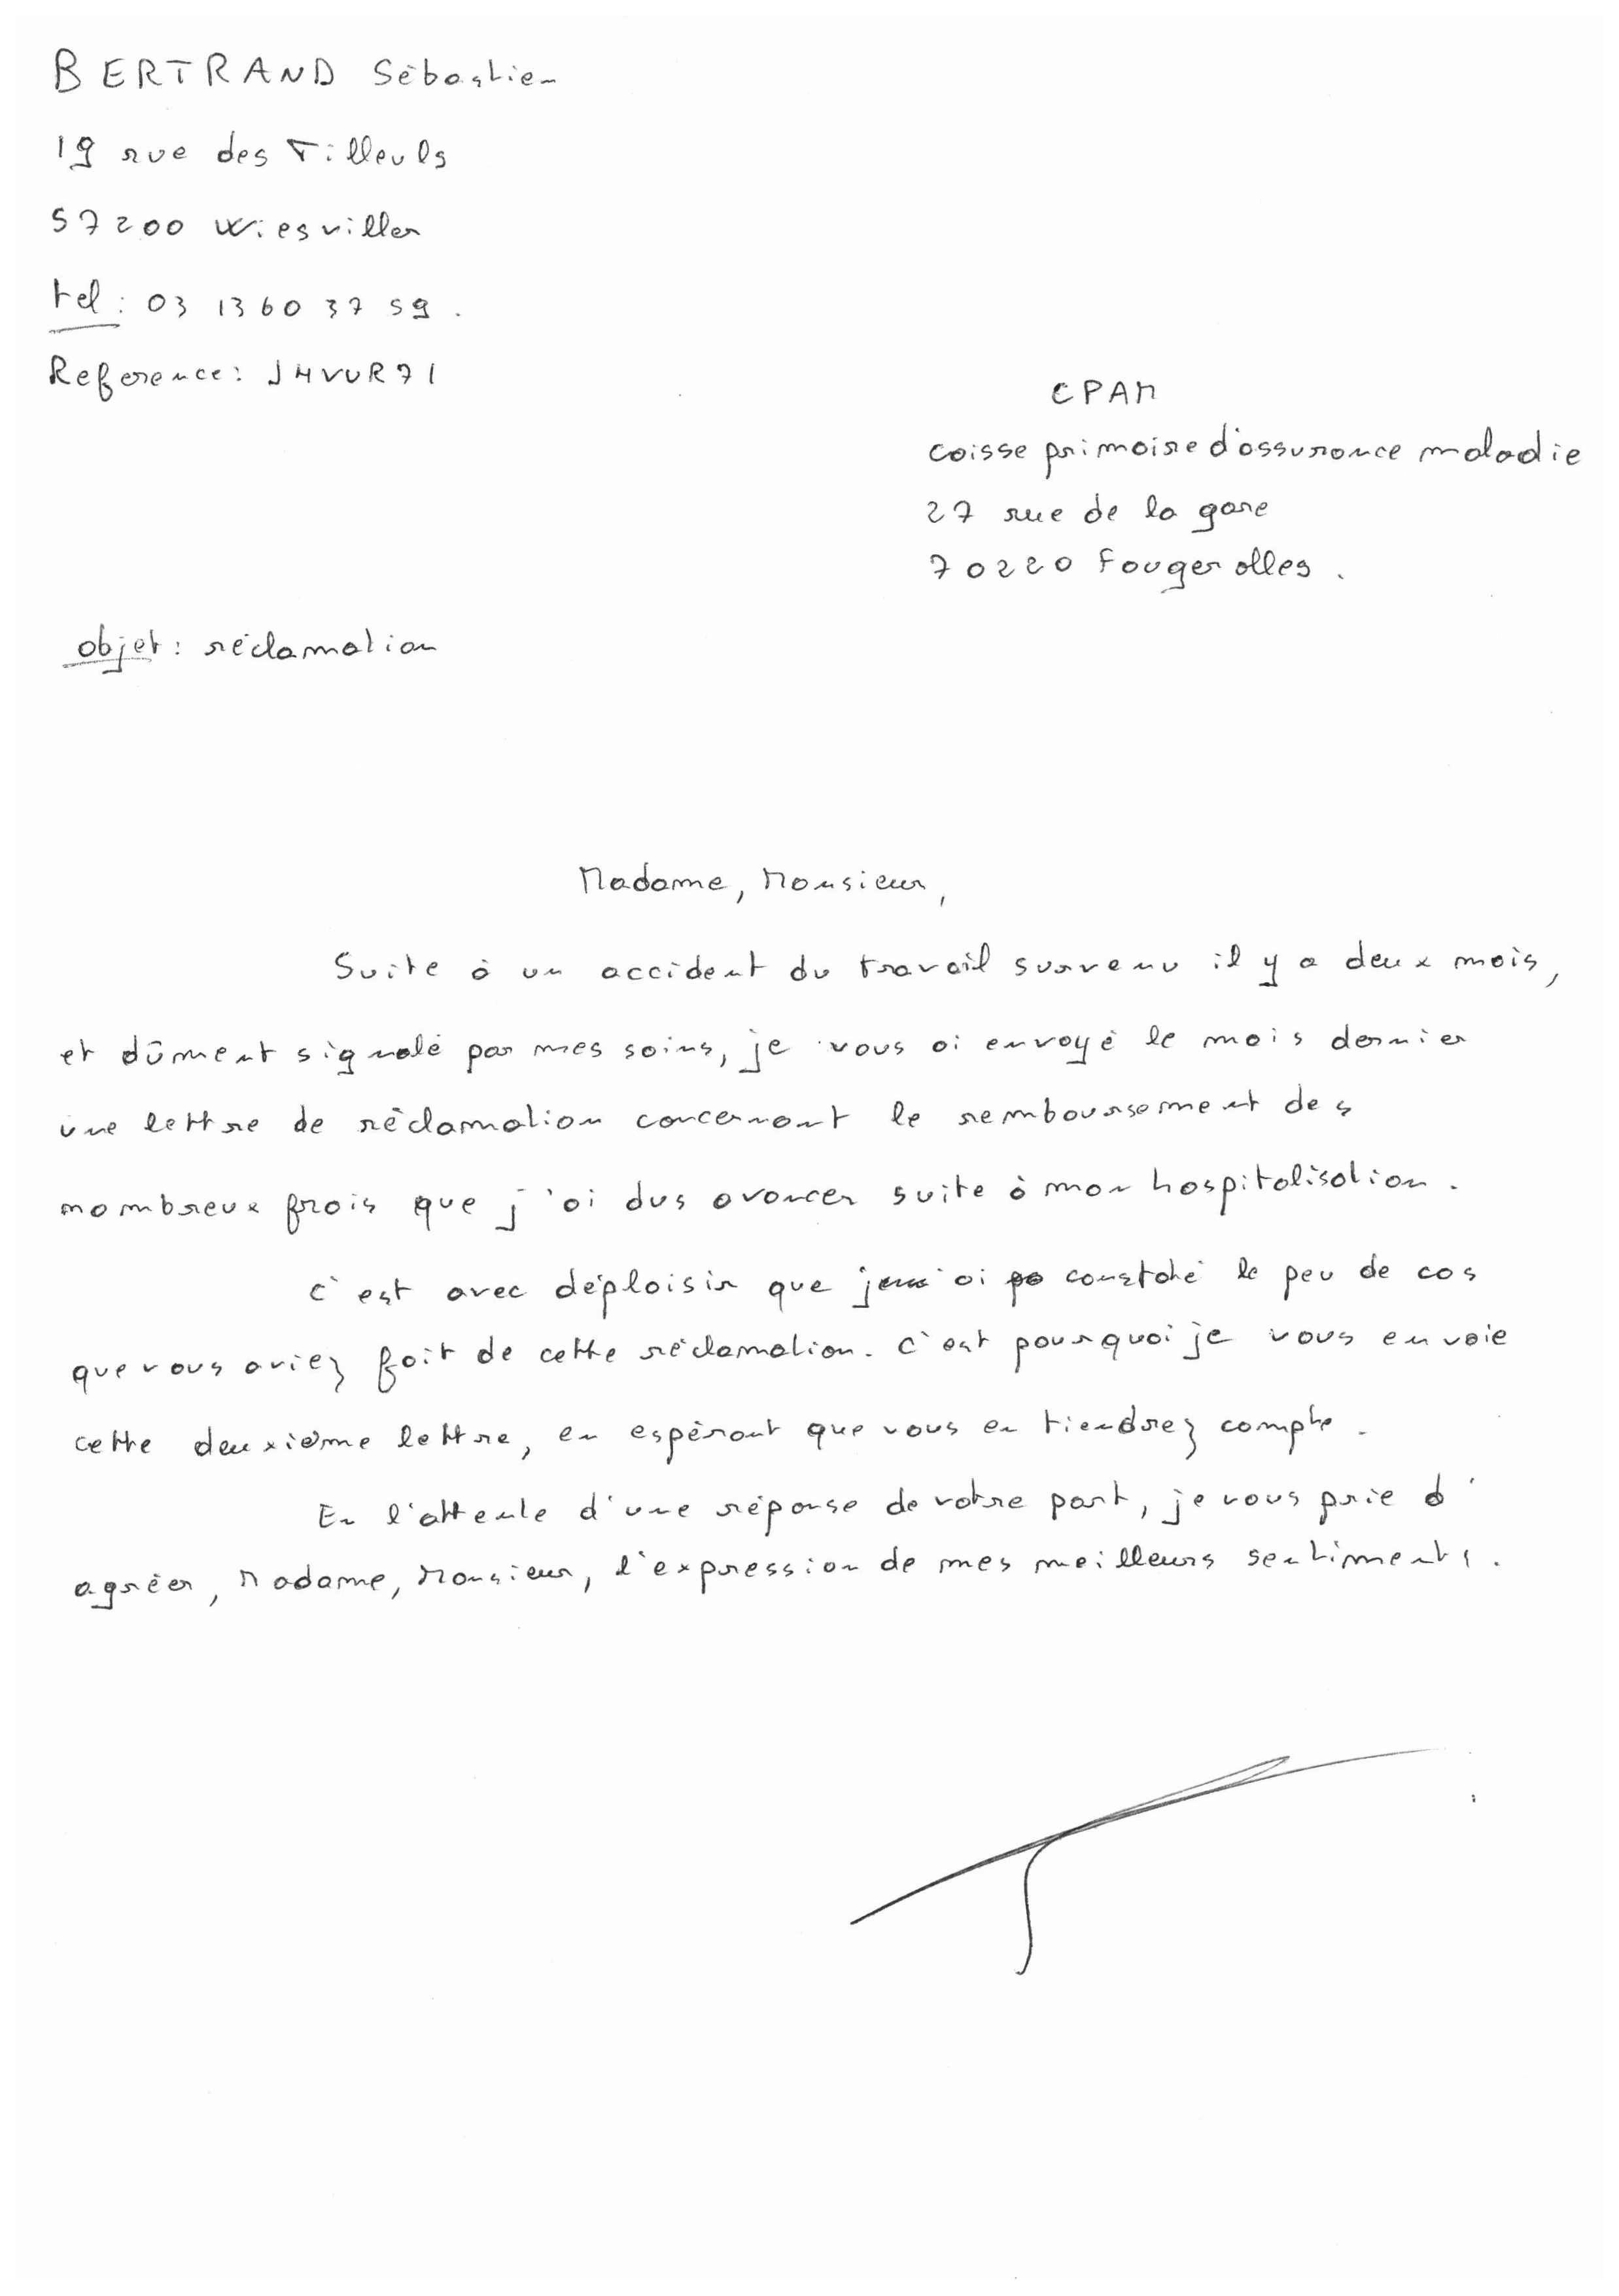 BERTRAND Sébastien
19 rue des Tilleuls
57200 Wiesviller
tel : 03 13 60 37 59.
Reference : J4VUR71
CPAM
caisse primaire d'assurance maladie
27 rue de la gare
70220 Fougerolles.
objet : réclamation
Madame, Monsieur,
Suite à un accident du travail survenu il y a deux mois,
et dûment signalé par mes soins, je vous ai envoyé le mois dernier
une lettre de réclamation concernant le remboursement des
nombreux frais que j'ai dus avancer suite à mon hospitalisation.
C'est avec déplaisir que j'ai constaté le peu de cas
que vous aviez fait de cette réclamation. C'est pourquoi je vous envoie
cette deuxième lettre, en espérant que vous en tiendrez compte.
En l'attente d'une réponse de votre part, je vous prie d'
agréer, Madame, Monsieur, l'expression de mes meilleurs sentiments.